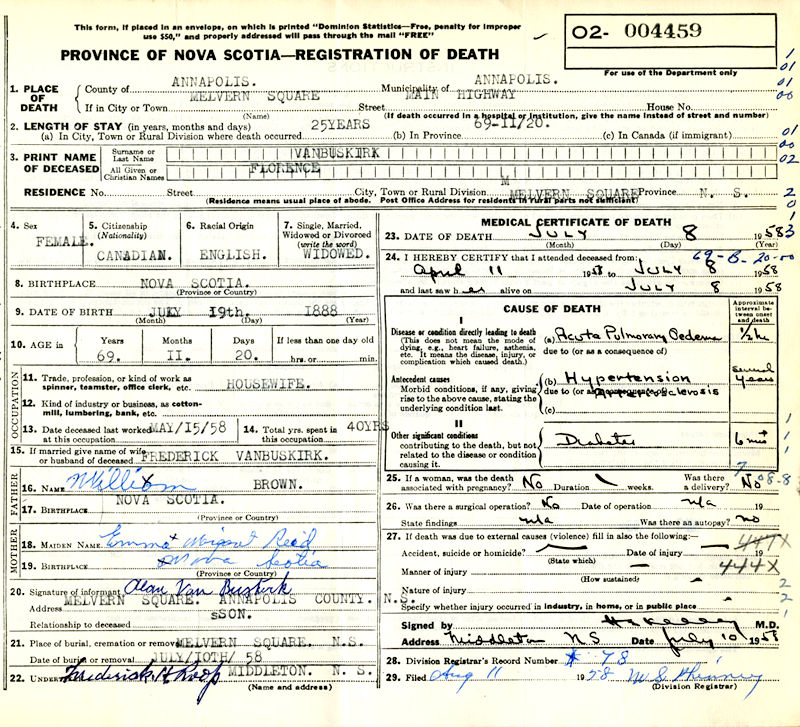 This form, if placed in an envelope, on which is printed "Dominion Statistics—Free, penalty for improper
use $50," and properly addressed will pass through the mail "FREE"
02- 004459
For use of the Department only
PROVINCE OF NOVA SCOTIA—REGISTRATION OF DEATH
1. PLACE OF DEATH
County of ANNAPOLIS. Municipality of ANNAPOLIS.
If in City or Town MELVERN SQUARE Street MAIN HIGHWAY House No.
(Name) (If death occurred in a hospital or institution, give the name instead of street and number)
2. LENGTH OF STAY (in years, months and days) 25YEARS 69-11/20.
(a) In City, Town or Rural Division where death occurred (b) In Province (c) In Canada (if immigrant)
3. PRINT NAME OF DECEASED
Surname or Last Name VANBUSKIRK
All Given or Christian Names FLORENCE M
RESIDENCE No. Street City, Town or Rural Division MELVERN SQUARE Province N. S.
(Residence means usual place of abode. Post Office Address for residents in rural parts not sufficient)
4. Sex FEMALE.
5. Citizenship (Nationality) CANADIAN.
6. Racial Origin ENGLISH.
7. Single, Married, Widowed or Divorced (write the word) WIDOWED.
8. BIRTHPLACE NOVA SCOTIA.
(Province or Country)
9. DATE OF BIRTH JULY 19th. 1888
(Month) (Day) (Year)
10. AGE in Years 69. Months 11. Days 20. If less than one day old
hrs. or min.
OCCUPATION
11. Trade, profession, or kind of work as spinner, teamster, office clerk, etc. HOUSEWIFE.
12. Kind of industry or business, as cotton-mill, lumbering, bank, etc.
13. Date deceased last worked at this occupation MAY/15/58
14. Total yrs. spent in this occupation 40YRS
15. If married give name of wife or husband of deceased FREDERICK VANBUSKIRK.
FATHER
16. NAME William BROWN.
17. BIRTHPLACE NOVA SCOTIA.
(Province or Country)
MOTHER
18. MAIDEN NAME Emma Reed
19. BIRTHPLACE Nova Scotia
(Province or Country)
20. Signature of informant Alan Van Buskirk
Address MELVERN SQUARE. ANNAPOLIS COUNTY. N.S.
Relationship to deceased sSON.
21. Place of burial, cremation or removal MELVERN SQUARE. N.S.
Date of burial or removal JULY/10TH/ 58
22. UNDERT Frederick H Roop MIDDLETON. N. S.
(Name and address)
MEDICAL CERTIFICATE OF DEATH
23. DATE OF DEATH JULY 8 1958
(Month) (Day) (Year)
24. I HEREBY CERTIFY that I attended deceased from: 69-B-20-00
April 11 1958 to JULY 8 1958
and last saw her alive on JULY 8 1958
CAUSE OF DEATH
Approximate interval between onset and death
I
Disease or condition directly leading to death
(This does not mean the mode of dying, e.g., heart failure, asthenia, etc. It means the disease, injury, or complication which caused death.)
(a) Acute Pulmonary Oedema 1/2 hr
due to (or as a consequence of)
Antecedent causes
Morbid conditions, if any, giving rise to the above cause, stating the underlying condition last.
(b) Hypertension several years
due to (or as a consequence of)
(c)
II
Other significant conditions
contributing to the death, but not related to the disease or condition causing it.
Diabetes 6 mos
25. If a woman, was the death associated with pregnancy? No Duration weeks. Was there a delivery? No
26. Was there a surgical operation? No Date of operation n/a
State findings n/a Was there an autopsy? no
27. If death was due to external causes (violence) fill in also the following:
Accident, suicide or homicide? Date of injury 19
(State which)
447X
Manner of injury 444X
(How sustained)
Nature of injury
Specify whether injury occurred in industry, in home, or in public place
Signed by M.D.
Address Middleton N S Date July 10 1958
28. Division Registrar's Record Number # 78
29. Filed Aug 11 1958
(Division Registrar)